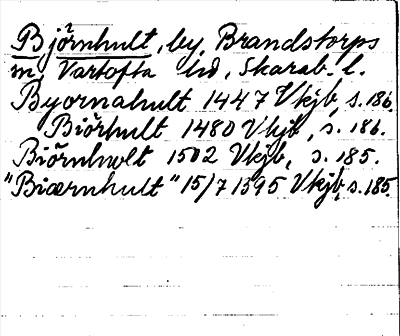 Björnhult, by, Brandstorps
m, Vartofta hd, Skarab. l.
Byornahult 1447 Vkjb, s. 186.
Biörhult 1480 Vkjb, s. 186.
Biörnhwlt 1502 Vkjb, s. 185.
"Biærnhult" 15/7 1395 Vkjb, s. 185.